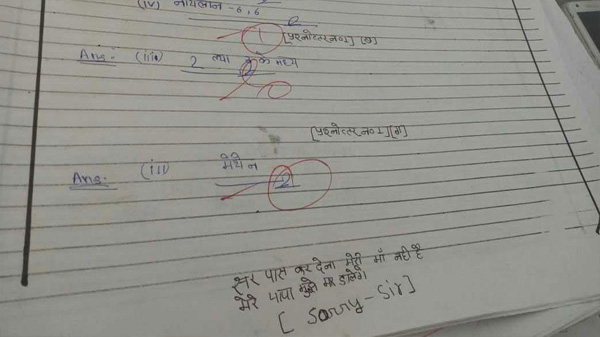 (iv) नायलॉन -6,6
1 [प्रश्नोत्तर न०1] (ब)
Ans:- (iii) 2 तथा 3 के मध्य
0
[प्रश्नोत्तर न०1] [स]
Ans:- (iii) मेथेन
2
सर पास कर देना मेरी माँ नही है
मेरे पापा मुझे मार डालेगे
[ Sorry - Sir]